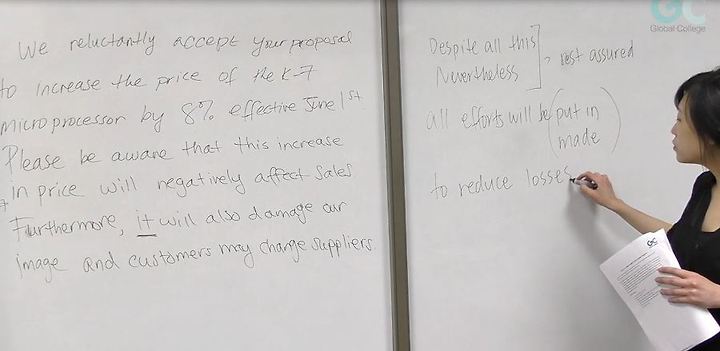 We reluctantly accept your proposal
to increase the price of the K-7
microprocessor by 8% effective June 1st.
Please be aware that this increase
in price will negatively affect sales
Furthermore, it will also damage our
image and customers may change suppliers.
Despite all this
Nevertheless
, rest assured
all efforts will be (put in
made)
to reduce losses
GC
Global College